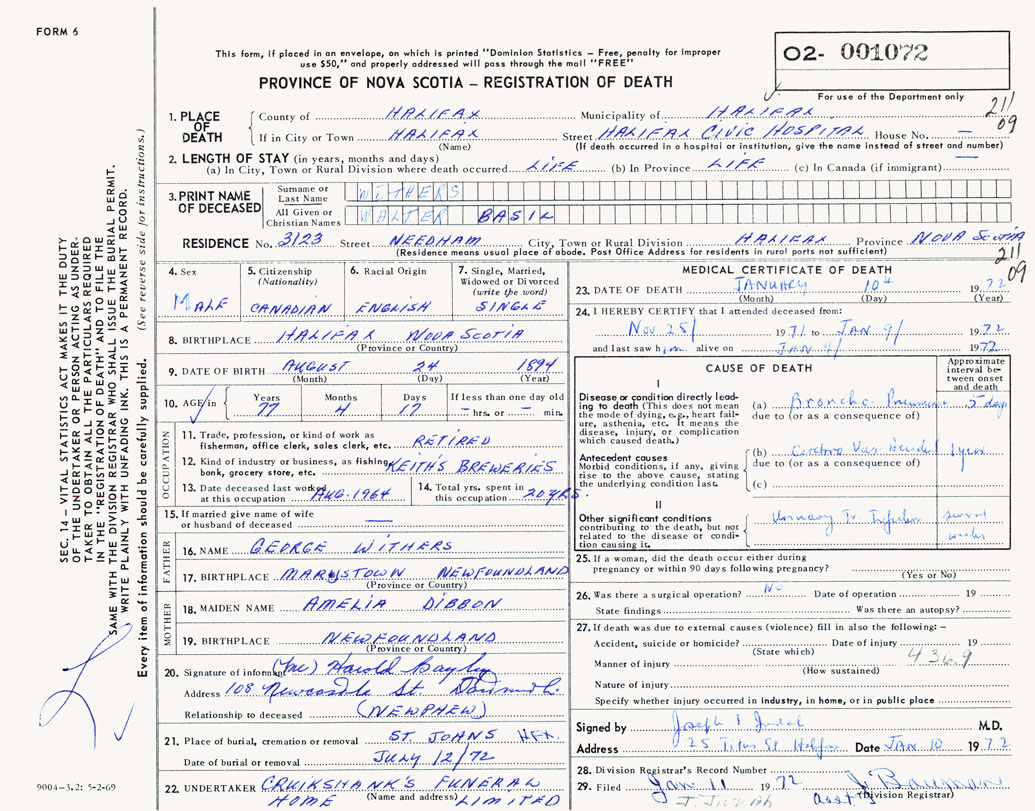 FORM 6
This form, if placed in an envelope, on which is printed "Dominion Statistics – Free, penalty for improper
use $50," and properly addressed will pass through the mail "FREE"
PROVINCE OF NOVA SCOTIA – REGISTRATION OF DEATH
02- 001072
For use of the Department only
211
09
1. PLACE OF DEATH
County of HALIFAX Municipality of HALIFAX
If in City or Town HALIFAX Street HALIFAX CIVIC HOSPITAL House No. —
(Name) (If death occurred in a hospital or institution, give the name instead of street and number)
2. LENGTH OF STAY (in years, months and days)
(a) In City, Town or Rural Division where death occurred LIFE (b) In Province LIFE (c) In Canada (if immigrant) —
3. PRINT NAME OF DECEASED
Surname or Last Name WITHERS
All Given or Christian Names WALTER BASIL
RESIDENCE No. 3123 Street NEEDHAM City, Town or Rural Division HALIFAX Province NOVA SCOTIA
(Residence means usual place of abode. Post Office Address for residents in rural parts not sufficient)
211
09
4. Sex MALE
5. Citizenship (Nationality) CANADIAN
6. Racial Origin ENGLISH
7. Single, Married, Widowed or Divorced (write the word) SINGLE
8. BIRTHPLACE HALIFAX NOVA SCOTIA
(Province or Country)
9. DATE OF BIRTH AUGUST 24 1894
(Month) (Day) (Year)
10. AGE in Years 77 Months 4 Days 17 If less than one day old – hrs. or – min.
OCCUPATION
11. Trade, profession, or kind of work as fisherman, office clerk, sales clerk, etc. RETIRED
12. Kind of industry or business, as fishing, bank, grocery store, etc. KEITH'S BREWERIES
13. Date deceased last worked at this occupation AUG. 1964
14. Total yrs. spent in this occupation 20 YRS.
15. If married give name of wife or husband of deceased —
FATHER
16. NAME GEORGE WITHERS
17. BIRTHPLACE MARYSTOWN NEWFOUNDLAND
(Province or Country)
MOTHER
18. MAIDEN NAME AMELIA DIBBON
19. BIRTHPLACE NEWFOUNDLAND
(Province or Country)
20. Signature of informant (Mr) Harold Bayley
Address 108 Newcastle St.
Relationship to deceased (NEWPHEW)
21. Place of burial, cremation or removal ST. JOHNS HFX.
Date of burial or removal JULY 12/72
22. UNDERTAKER CRUIKSHANK'S FUNERAL
HOME (Name and address) LIMITED
MEDICAL CERTIFICATE OF DEATH
23. DATE OF DEATH JANUARY 10th 1972
(Month) (Day) (Year)
24. I HEREBY CERTIFY that I attended deceased from:
Nov 25/ 1971 to JAN 9/ 1972
and last saw him alive on JAN 9/ 1972
CAUSE OF DEATH
Approximate interval between onset and death
I
Disease or condition directly leading to death (This does not mean the mode of dying, e.g., heart failure, asthenia, etc. It means the disease, injury, or complication which caused death.)
(a) Broncho Pneumonia 5 days
due to (or as a consequence of)
Antecedent causes
Morbid conditions, if any, giving rise to the above cause, stating the underlying condition last.
(b) Cerebro Vas. Accident 1 year
due to (or as a consequence of)
(c)
II
Other significant conditions contributing to the death, but not related to the disease or condition causing it.
Urinary Tr. Infection several weeks
25. If a woman, did the death occur either during
pregnancy or within 90 days following pregnancy?
(Yes or No)
26. Was there a surgical operation? No Date of operation 19
State findings Was there an autopsy?
27. If death was due to external causes (violence) fill in also the following: –
Accident, suicide or homicide? Date of injury 19
(State which)
Manner of injury 436.9
(How sustained)
Nature of injury
Specify whether injury occurred in Industry, in home, or in public place
Signed by Joseph M.D.
Address 25 Titus St Halifax Date JAN. 10 1972
28. Division Registrar's Record Number
29. Filed Jan 11 1972
asst. (Division Registrar)
SEC. 14 – VITAL STATISTICS ACT MAKES IT THE DUTY
OF THE UNDERTAKER OR PERSON ACTING AS UNDER-
TAKER TO OBTAIN ALL THE PARTICULARS REQUIRED
IN THE "REGISTRATION OF DEATH" AND TO FILE THE
SAME WITH THE DIVISION REGISTRAR WHO SHALL ISSUE THE BURIAL PERMIT.
WRITE PLAINLY WITH UNFADING INK. THIS IS A PERMANENT RECORD.
Every item of information should be carefully supplied. (See reverse side for instructions.)
9004-3.2: 5-2-69